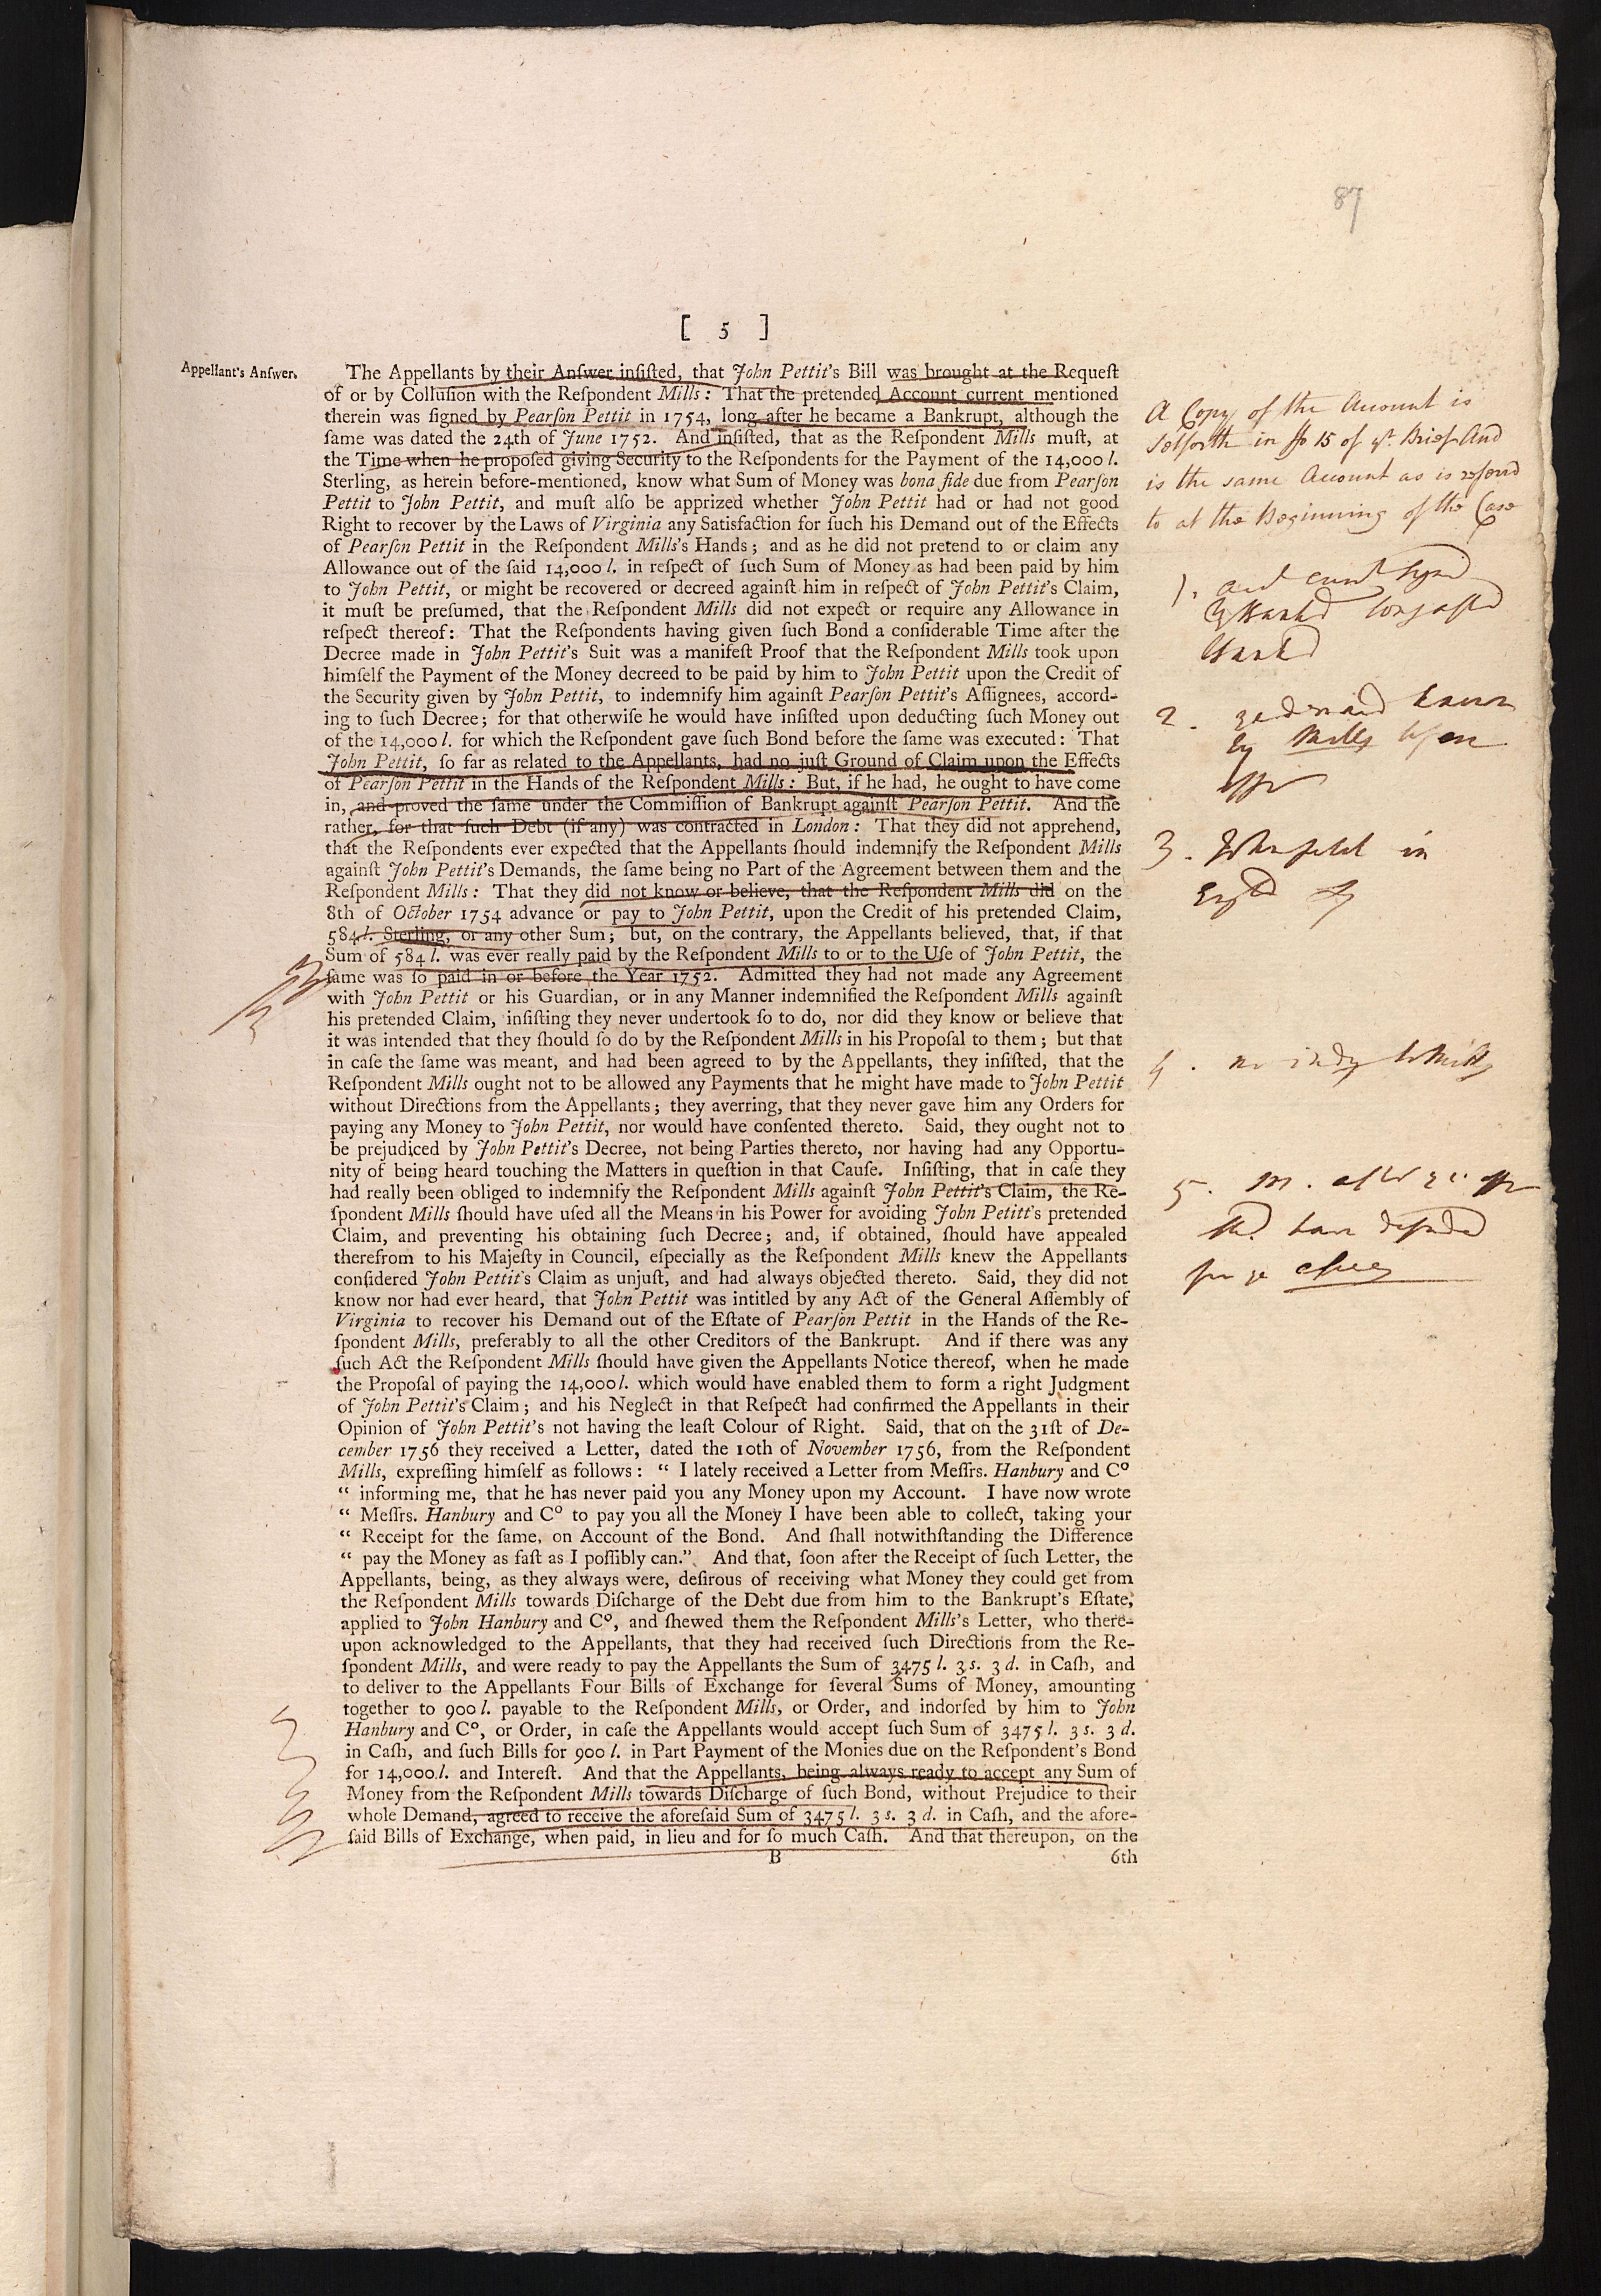 87
[ 5 ]
Appellant's Anſwer.
The Appellants by their Anſwer inſiſted, that John Pettit's Bill was brought at the Requeſt
of or by Colluſion with the Reſpondent Mills: That the pretended Account current mentioned
therein was ſigned by Pearſon Pettit in 1754, long after he became a Bankrupt, although the
ſame was dated the 24th of June 1752. And inſiſted, that as the Reſpondent Mills muſt, at
the Time when he propoſed giving Security to the Reſpondents for the Payment of the 14,000 l.
Sterling, as herein before-mentioned, know what Sum of Money was bona fide due from Pearſon
Pettit to John Pettit, and muſt alſo be apprized whether John Pettit had or had not good
Right to recover by the Laws of Virginia any Satisfaction for ſuch his Demand out of the Effects
of Pearſon Pettit in the Reſpondent Mills's Hands; and as he did not pretend to or claim any
Allowance out of the ſaid 14,000 l. in reſpect of ſuch Sum of Money as had been paid by him
to John Pettit, or might be recovered or decreed againſt him in reſpect of John Pettit's Claim,
it muſt be preſumed, that the Reſpondent Mills did not expect or require any Allowance in
reſpect thereof: That the Reſpondents having given ſuch Bond a conſiderable Time after the
Decree made in John Pettit's Suit was a manifeſt Proof that the Reſpondent Mills took upon
himſelf the Payment of the Money decreed to be paid by him to John Pettit upon the Credit of
the Security given by John Pettit, to indemnify him againſt Pearſon Pettit's Aſſignees, accord-
ing to ſuch Decree; for that otherwiſe he would have inſiſted upon deducting ſuch Money out
of the 14,000 l. for which the Reſpondent gave ſuch Bond before the ſame was executed: That
John Pettit, ſo far as related to the Appellants, had no juſt Ground of Claim upon the Effects
of Pearſon Pettit in the Hands of the Reſpondent Mills: But, if he had, he ought to have come
in, and proved the ſame under the Commiſſion of Bankrupt againſt Pearſon Pettit. And the
rather, for that ſuch Debt (if any) was contracted in London: That they did not apprehend,
that the Reſpondents ever expected that the Appellants ſhould indemnify the Reſpondent Mills
againſt John Pettit's Demands, the ſame being no Part of the Agreement between them and the
Reſpondent Mills: That they did not know or believe, that the Reſpondent Mills did on the
8th of October 1754 advance or pay to John Pettit, upon the Credit of his pretended Claim,
584 l. Sterling, or any other Sum; but, on the contrary, the Appellants believed, that, if that
Sum of 584 l. was ever really paid by the Reſpondent Mills to or to the Uſe of John Pettit, the
ſame was ſo paid in or before the Year 1752. Admitted they had not made any Agreement
with John Pettit or his Guardian, or in any Manner indemnified the Reſpondent Mills againſt
his pretended Claim, inſiſting they never undertook ſo to do, nor did they know or believe that
it was intended that they ſhould ſo do by the Reſpondent Mills in his Propoſal to them; but that
in caſe the ſame was meant, and had been agreed to by the Appellants, they inſiſted, that the
Reſpondent Mills ought not to be allowed any Payments that he might have made to John Pettit
without Directions from the Appellants; they averring, that they never gave him any Orders for
paying any Money to John Pettit, nor would have conſented thereto. Said, they ought not to
be prejudiced by John Pettit's Decree, not being Parties thereto, nor having had any Opportu-
nity of being heard touching the Matters in queſtion in that Cauſe. Inſiſting, that in caſe they
had really been obliged to indemnify the Reſpondent Mills againſt John Pettit's Claim, the Re-
ſpondent Mills ſhould have uſed all the Means in his Power for avoiding John Petitt's pretended
Claim, and preventing his obtaining ſuch Decree; and, if obtained, ſhould have appealed
therefrom to his Majeſty in Council, eſpecially as the Reſpondent Mills knew the Appellants
conſidered John Pettit's Claim as unjuſt, and had always objected thereto. Said, they did not
know nor had ever heard, that John Pettit was intitled by any Act of the General Aſſembly of
Virginia to recover his Demand out of the Eſtate of Pearſon Pettit in the Hands of the Re-
ſpondent Mills, preferably to all the other Creditors of the Bankrupt. And if there was any
ſuch Act the Reſpondent Mills ſhould have given the Appellants Notice thereof, when he made
the Propoſal of paying the 14,000 l. which would have enabled them to form a right Judgment
of John Pettit's Claim; and his Neglect in that Reſpect had confirmed the Appellants in their
Opinion of John Pettit's not having the leaſt Colour of Right. Said, that on the 31ſt of De-
cember 1756 they received a Letter, dated the 10th of November 1756, from the Reſpondent
Mills, expreſſing himſelf as follows: “ I lately received a Letter from Meſſrs. Hanbury and Cº
“ informing me, that he has never paid you any Money upon my Account. I have now wrote
“ Meſſrs. Hanbury and Cº to pay you all the Money I have been able to collect, taking your
“ Receipt for the ſame, on Account of the Bond. And ſhall notwithſtanding the Difference
“ pay the Money as faſt as I poſſibly can.” And that, ſoon after the Receipt of ſuch Letter, the
Appellants, being, as they always were, deſirous of receiving what Money they could get from
the Reſpondent Mills towards Diſcharge of the Debt due from him to the Bankrupt's Eſtate,
applied to John Hanbury and Cº, and ſhewed them the Reſpondent Mills's Letter, who there-
upon acknowledged to the Appellants, that they had received ſuch Directions from the Re-
ſpondent Mills, and were ready to pay the Appellants the Sum of 3475 l. 3 s. 3 d. in Caſh, and
to deliver to the Appellants Four Bills of Exchange for ſeveral Sums of Money, amounting
together to 900 l. payable to the Reſpondent Mills, or Order, and indorſed by him to John
Hanbury and Cº, or Order, in caſe the Appellants would accept ſuch Sum of 3475 l. 3 s. 3 d.
in Caſh, and ſuch Bills for 900 l. in Part Payment of the Monies due on the Reſpondent's Bond
for 14,000 l. and Intereſt. And that the Appellants, being always ready to accept any Sum of
Money from the Reſpondent Mills towards Diſcharge of ſuch Bond, without Prejudice to their
whole Demand, agreed to receive the aforeſaid Sum of 3475 l. 3 s. 3 d. in Caſh, and the afore-
ſaid Bills of Exchange, when paid, in lieu and for ſo much Caſh. And that thereupon, on the
B
6th
A Copy of the Account is
Setforth in fo 15 of yr. Brief And
is the same Account as is referrd
to at the Beginning of the Case
1.
2.
by Mills
3. in
4. no
5. M.
have